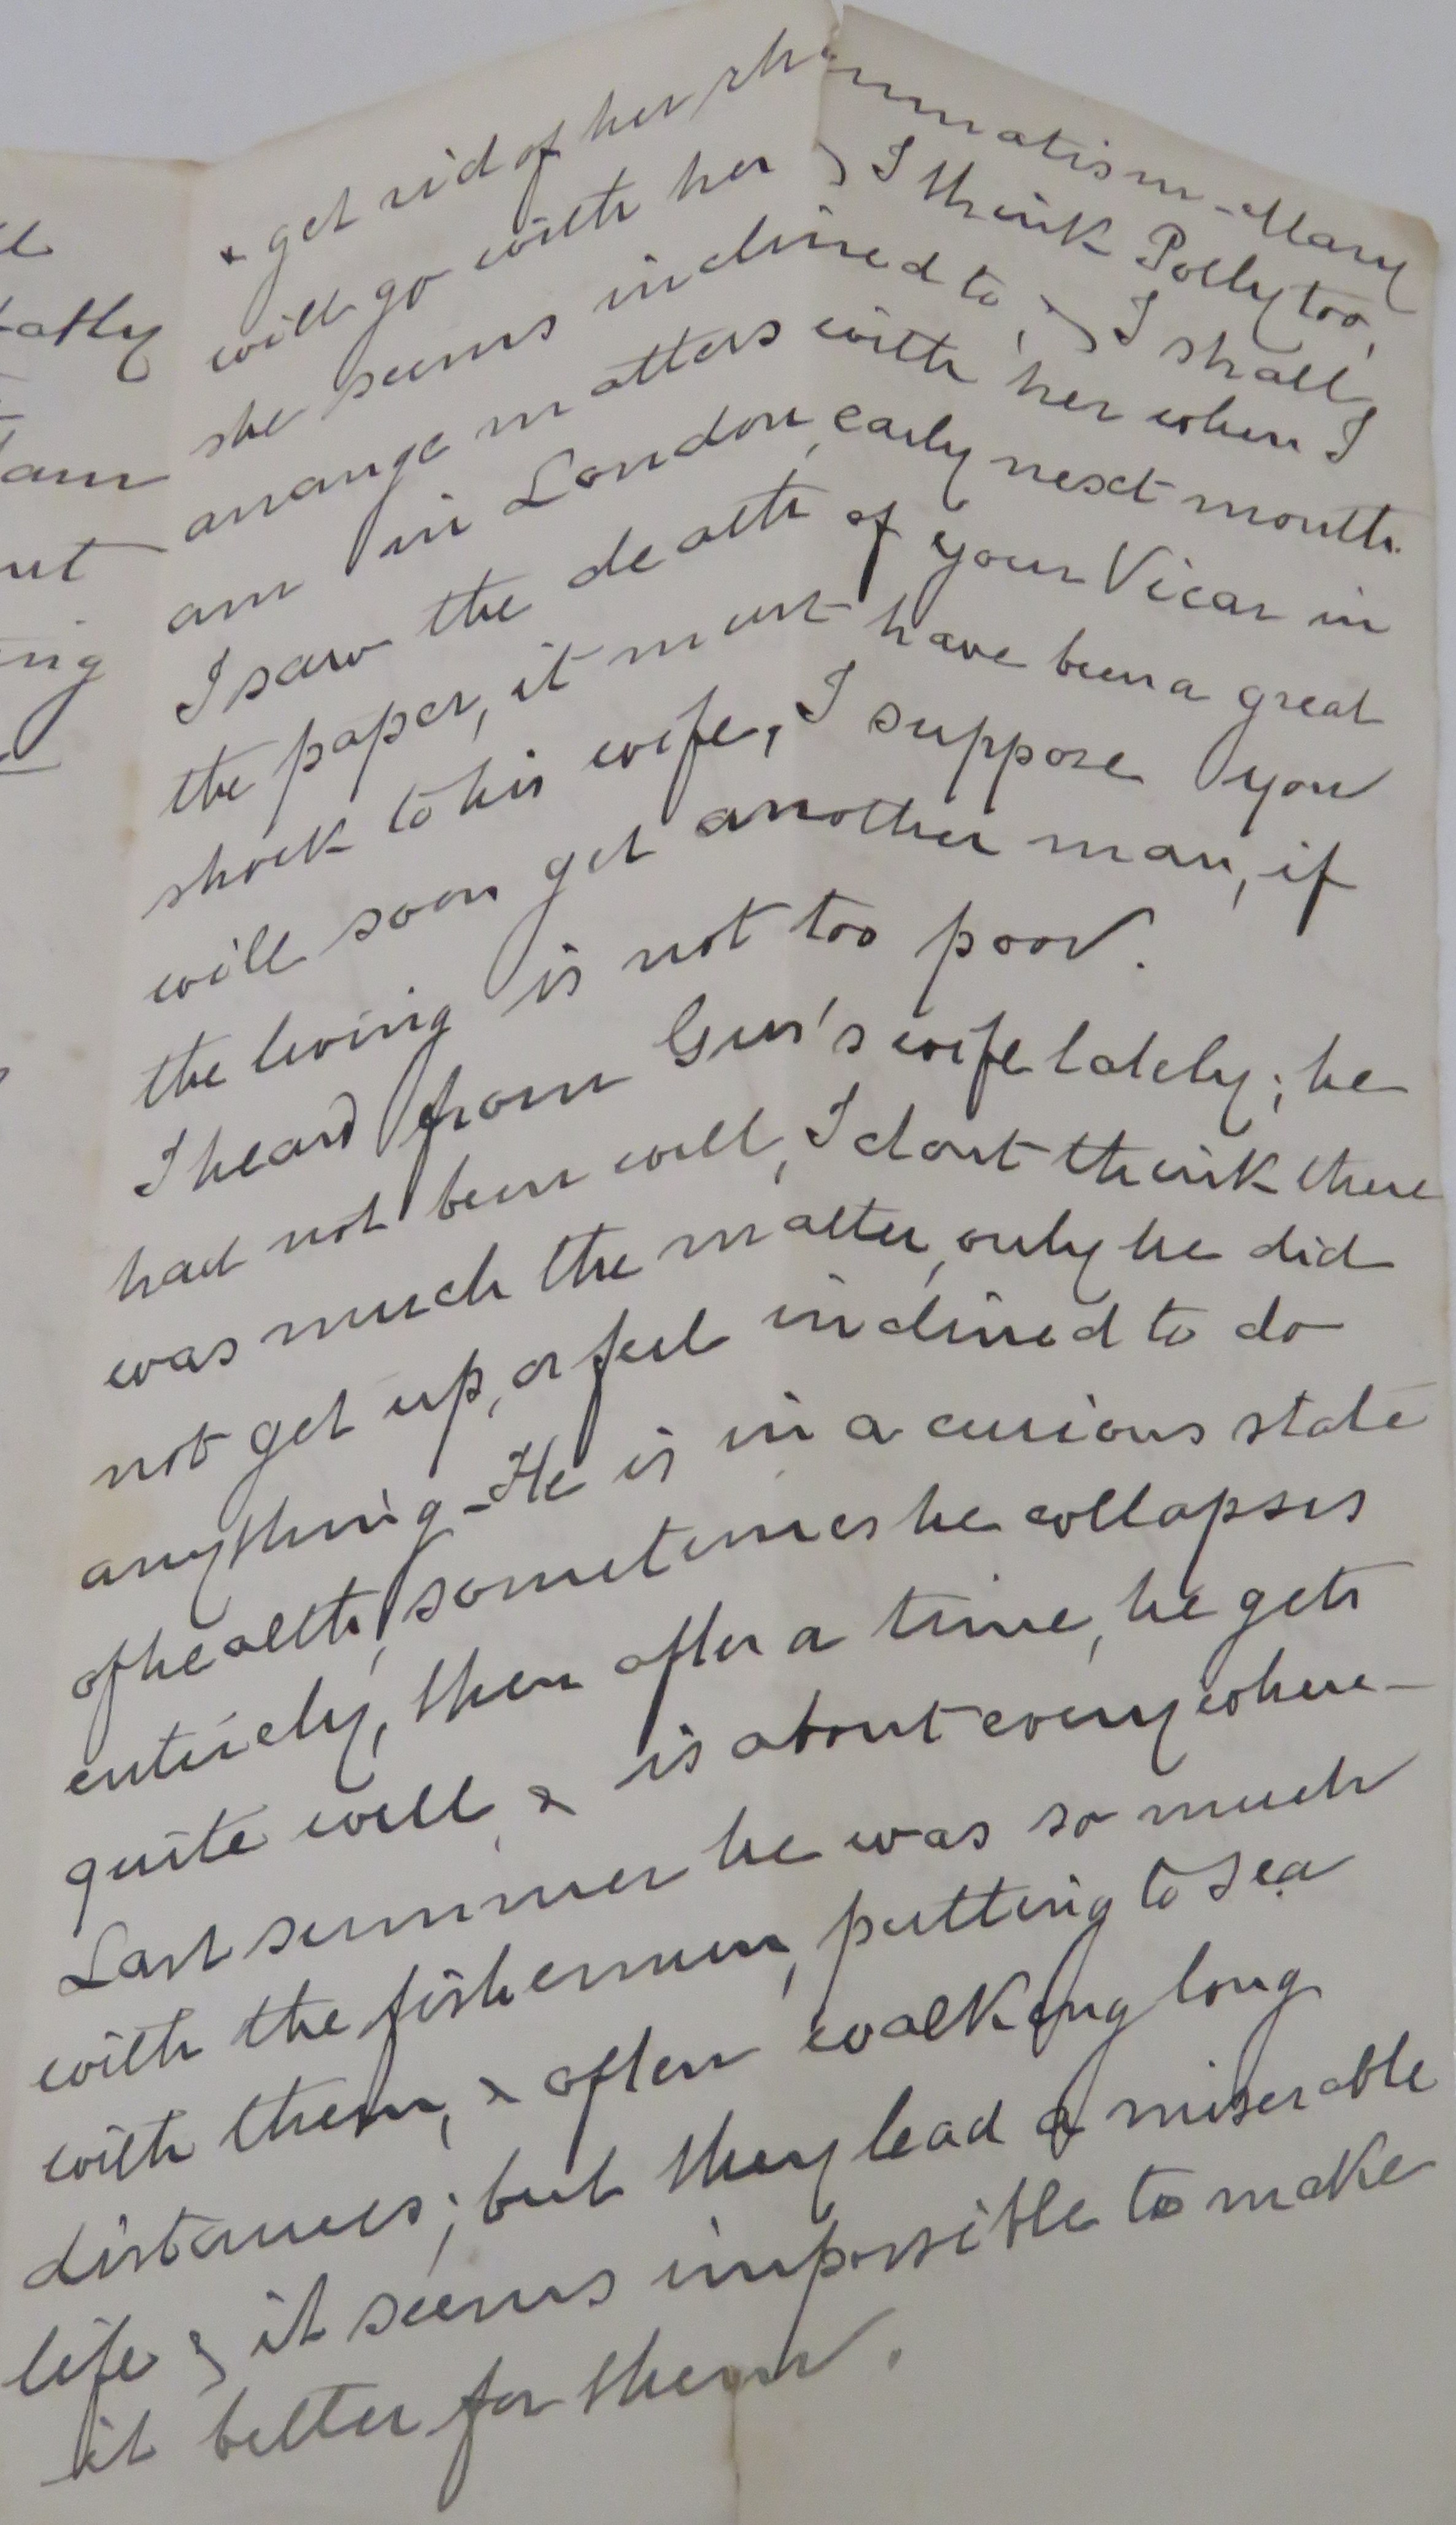 & get rid of her rheumatism - Mary
will go with her & I think Polly too,
she seems inclined to, & I shall
arrange matters with her when I
am in London, early next month.
I saw the death of your Vicar in
the paper, it must have been a great
shock to his wife, I suppose you
will soon get another man, if
the living is not too poor.
I heard from Gus's wife lately; he
had not been well, I dont think there
was much the matter, only he did
not get up, or feel inclined to do
anything - He is in a curious state
of health, sometimes he collapses
entirely, then after a time, he gets
quite well, & is about everywhere -
Last summer he was so much
with the fishermen, putting to sea
with them, & often walking long
distances; but they lead a miserable
life & it seems impossible to make
it better for them.